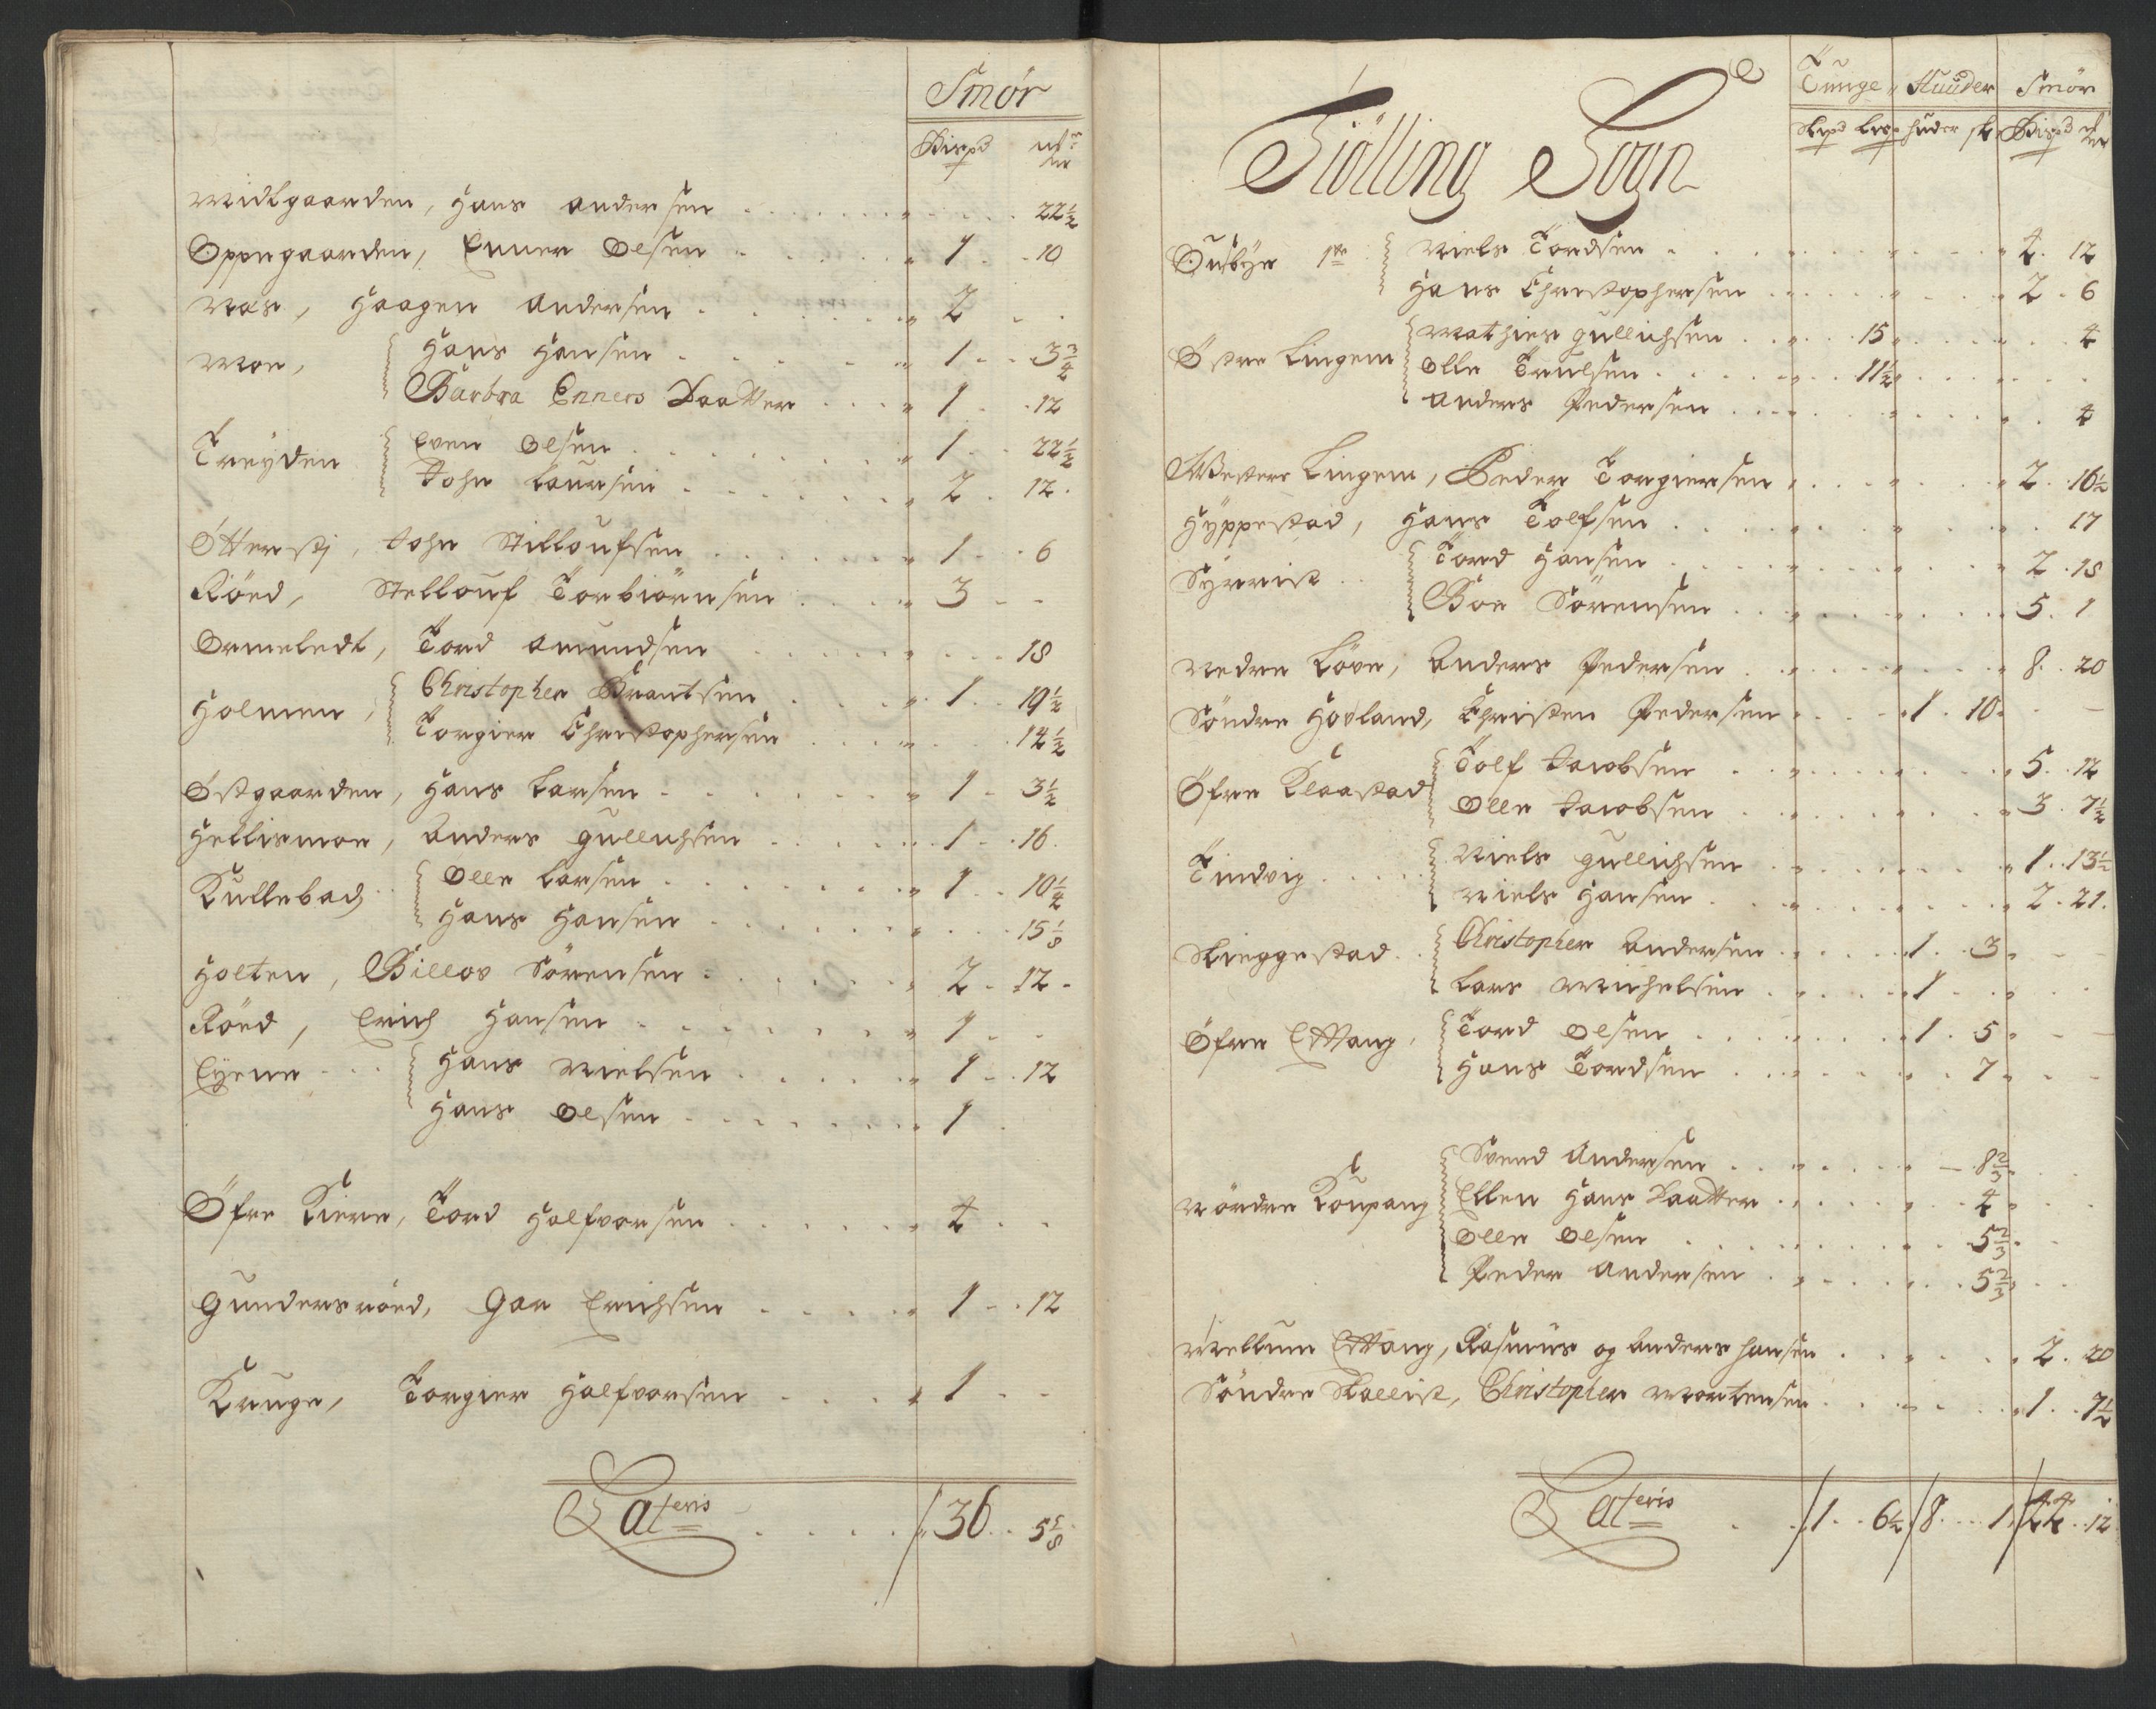 Smør
Bispd mk
ner
Midtgaarden, Hans Andersen 22½
Oppegaarden, Enner Olsen 1 10
Næs, Haagen Andersen 2
Moe, Hans Hansen 1 3¾
Barbra Enners Daatter 1 12
Treyden Even Olsen 1 22½
John Laursen 2 12
Otterstj, John Stilloufsen 1 6
Röed, Stellouf Torbiörnsen 3
Ormeledt, Tord Amundsen 18
Holmen, Christopher Brantsen 1 19½
Torgier Christophersen 14½
Østgaarden, Hans Larsen 1 3½
Hellismoe, Anders Gullichsen 1 16
Kullebach Olle Larsen 1 10¼
Hans Hansen 15⅛
Holten, Billov Sörensen 2 12
Röed, Erich Hansen 1
Eyene Hans Nielsen 1 12
Hans Olsen 1
Öfre Kiere, Tord Halfvorsen 4
Gundersröed, Gar Erichsen 1 12
Kruge, Torgier Halfvorsen 1
Lateris 36 5⅝
Tunge Huuder Smör
Skpd Lisp huder sk Bispd mk
Tiölling Sogn
Ousbye 1te Niels Tordsen 4 12
Hans Christophersen 2 6
Östre Lingem Mathies Gullichsen 15 4
Olle Truelsen 11½
Anders Pedersen 4
Westere Lingem, Peder Torgiersen 2 16½
Hyppestad, Hans Tolfsen 17
Syrrist Tord Hansen 2 18
Boe Sörensen 5 1
Nedre Löve, Anders Pedersen 8 20
Söndre Hovland, Christen Pedersen 1 10
Öfre Klaastad Tolf Jacobsen 5 12
Olle Jacobsen 3 7½
Tindvig Niels Gullichsen 1 13½
Niels Hansen 2 21
Skieggestad Christopher Andersen 1 3
Lars Michelsen 1
Öfre Ettang, Tord Olsen 1 5
Hans Tordsen 7
Nördre Koupang Svend Andersen 8⅔
Ellen Hans Daatter 4
Olle Olsen 5⅔
Peder Andersen 5⅔
Mellum Ettang, Rasmus og Anders Hansen 2 20
Söndre Skallist, Christopher Mortensen 1 7½
Lateris 1 6½ 8 1 44 12